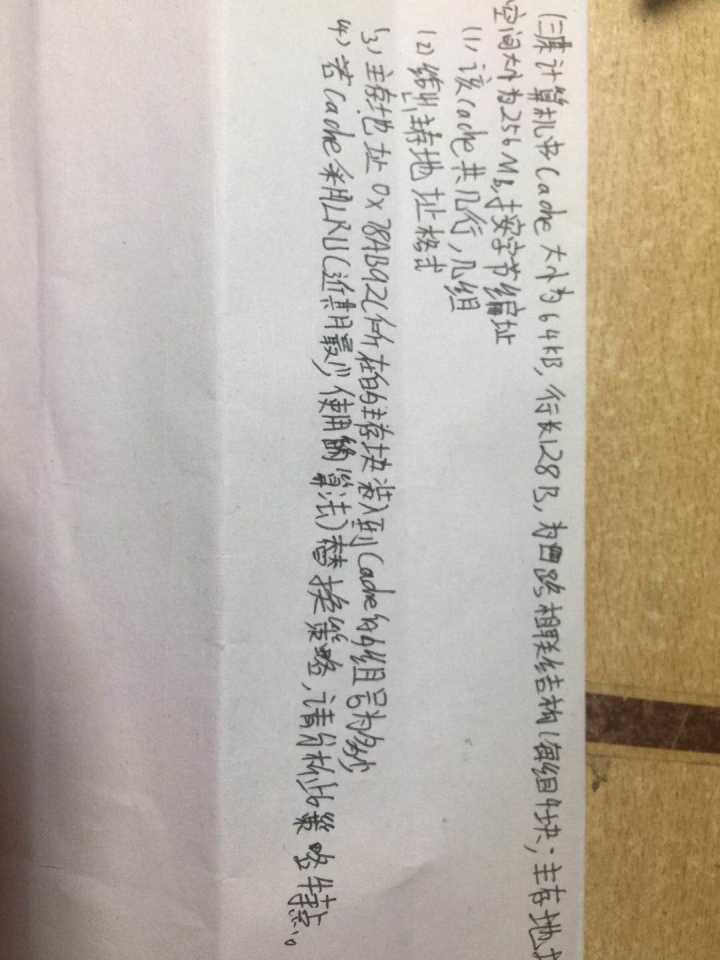 (三)某计算机中Cache大小为64kB,行长128B,为四路相联结构(每组4块,主存地址
空间大小为256MB,按字节编址
(1)、该Cache共几行,几组
(2)给出主存地址格式
(3)、主存地址0x78AB92C所在的主存块装入到Cache的组号为多少
(4)、若Cache采用LRU(近其月最少使用的算法)替换策略,请分析此策略特点。